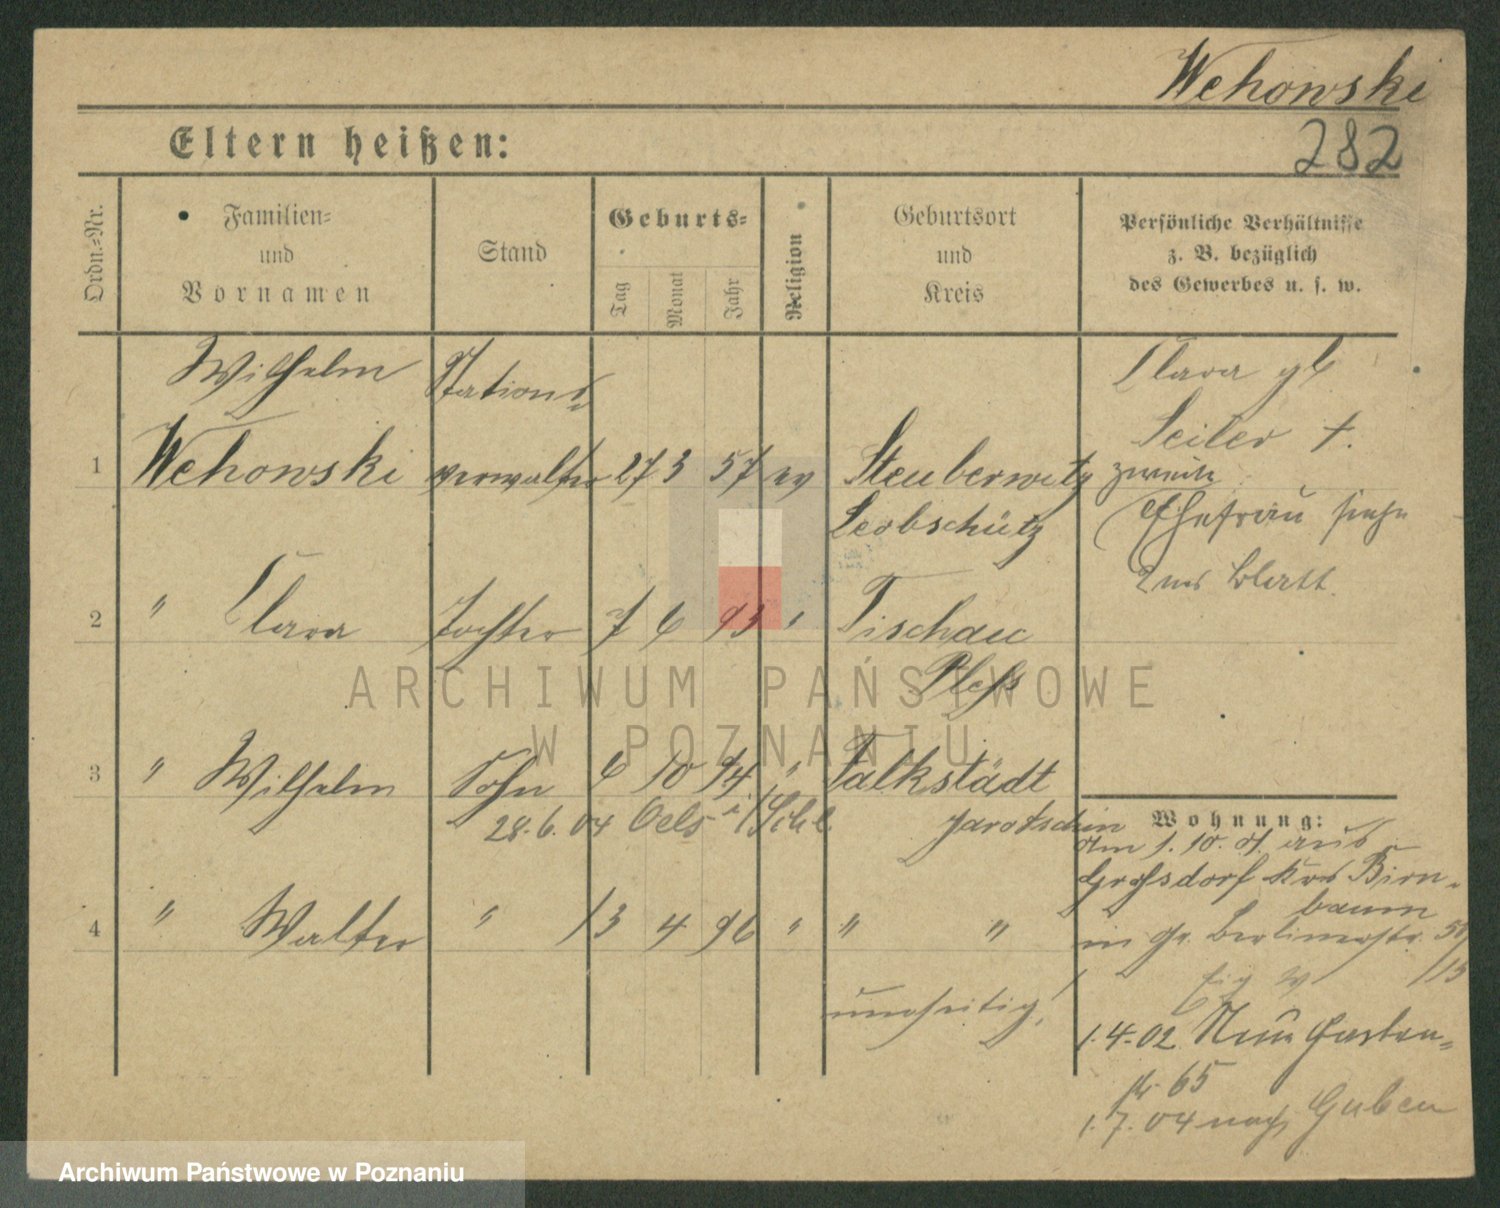 Wehowski
Eltern heißen:
282
Ordn.=Nr.
Familien=
und
Vornamen
Stand
Geburts=
Tag
Monat
Jahr
Religion
Geburtsort
und
Kreis
Persönliche Verhältnisse
z. B. bezüglich
des Gewerbes u. s. w.
Wilhelm Stations
1 Wehowski verwalter 27 3 57 ev Steuberwitz
Leobschütz
Clara gb
Seiler †.
zweite
Ehefrau siehe
2tes Blatt.
2 " Clara Tochter 7 6 93 " Tischau
Pleß
3 " Wilhelm Sohn 6 10 94 " Falkstädt
Jarotschin
28.6.04 Oels i/Schl.
4 " Walter " 13 4 96 " " "
umseitig!
Wohnung:
Am 1.10.01 aus
Großdorf Krs Birn-
baum
in Gr. Berlinerstr. 58
/15
1.4.02 Neue Garten-
str 65
1.7.04 nach Guben
ARCHIWUM PAŃSTWOWE
W POZNANIU
Archiwum Państwowe w Poznaniu